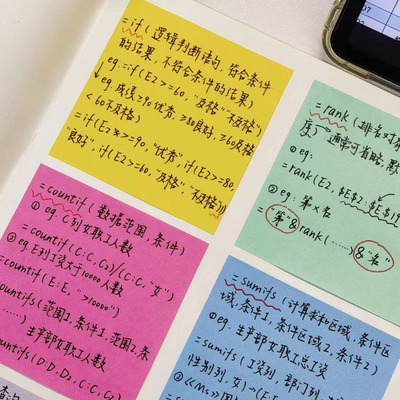 =if(逻辑判断语句,符合条件
的结果,不符合条件的结果)
eg.=if(E2>=60,"及格","不及格")
eg.成绩≥90优秀,≥80良好,≥60及格
<60不及格)
=if(E2>=90,"优秀",if(E2>=80,
"良好",if(E2>=60,"及格","不及格")))
=rank(排名对
序)→通常可省略,默
①eg:
=rank(E2,$E$2:$E$19
②eg.第×名
="第"&rank(……)&"名"
=countif(数据范围,条件)
①eg.C列女职工人数
=countif(C:C,C2)/(C:C,"女")
②eg.E列工资大于10000人数
=countif(E:E,">10000")
countifs(范围1,条件1,范围2,条
……)生产部女职工人数
ountifs(D:D,D2,C:C,C2)
=sumifs(计算求和区域,条件区
域,条件1,条件区域2,条件2)
①eg.生产部女职工总工资
=sumifs(工资列,部门列,
性别列,女)→(E:
②《Ms》